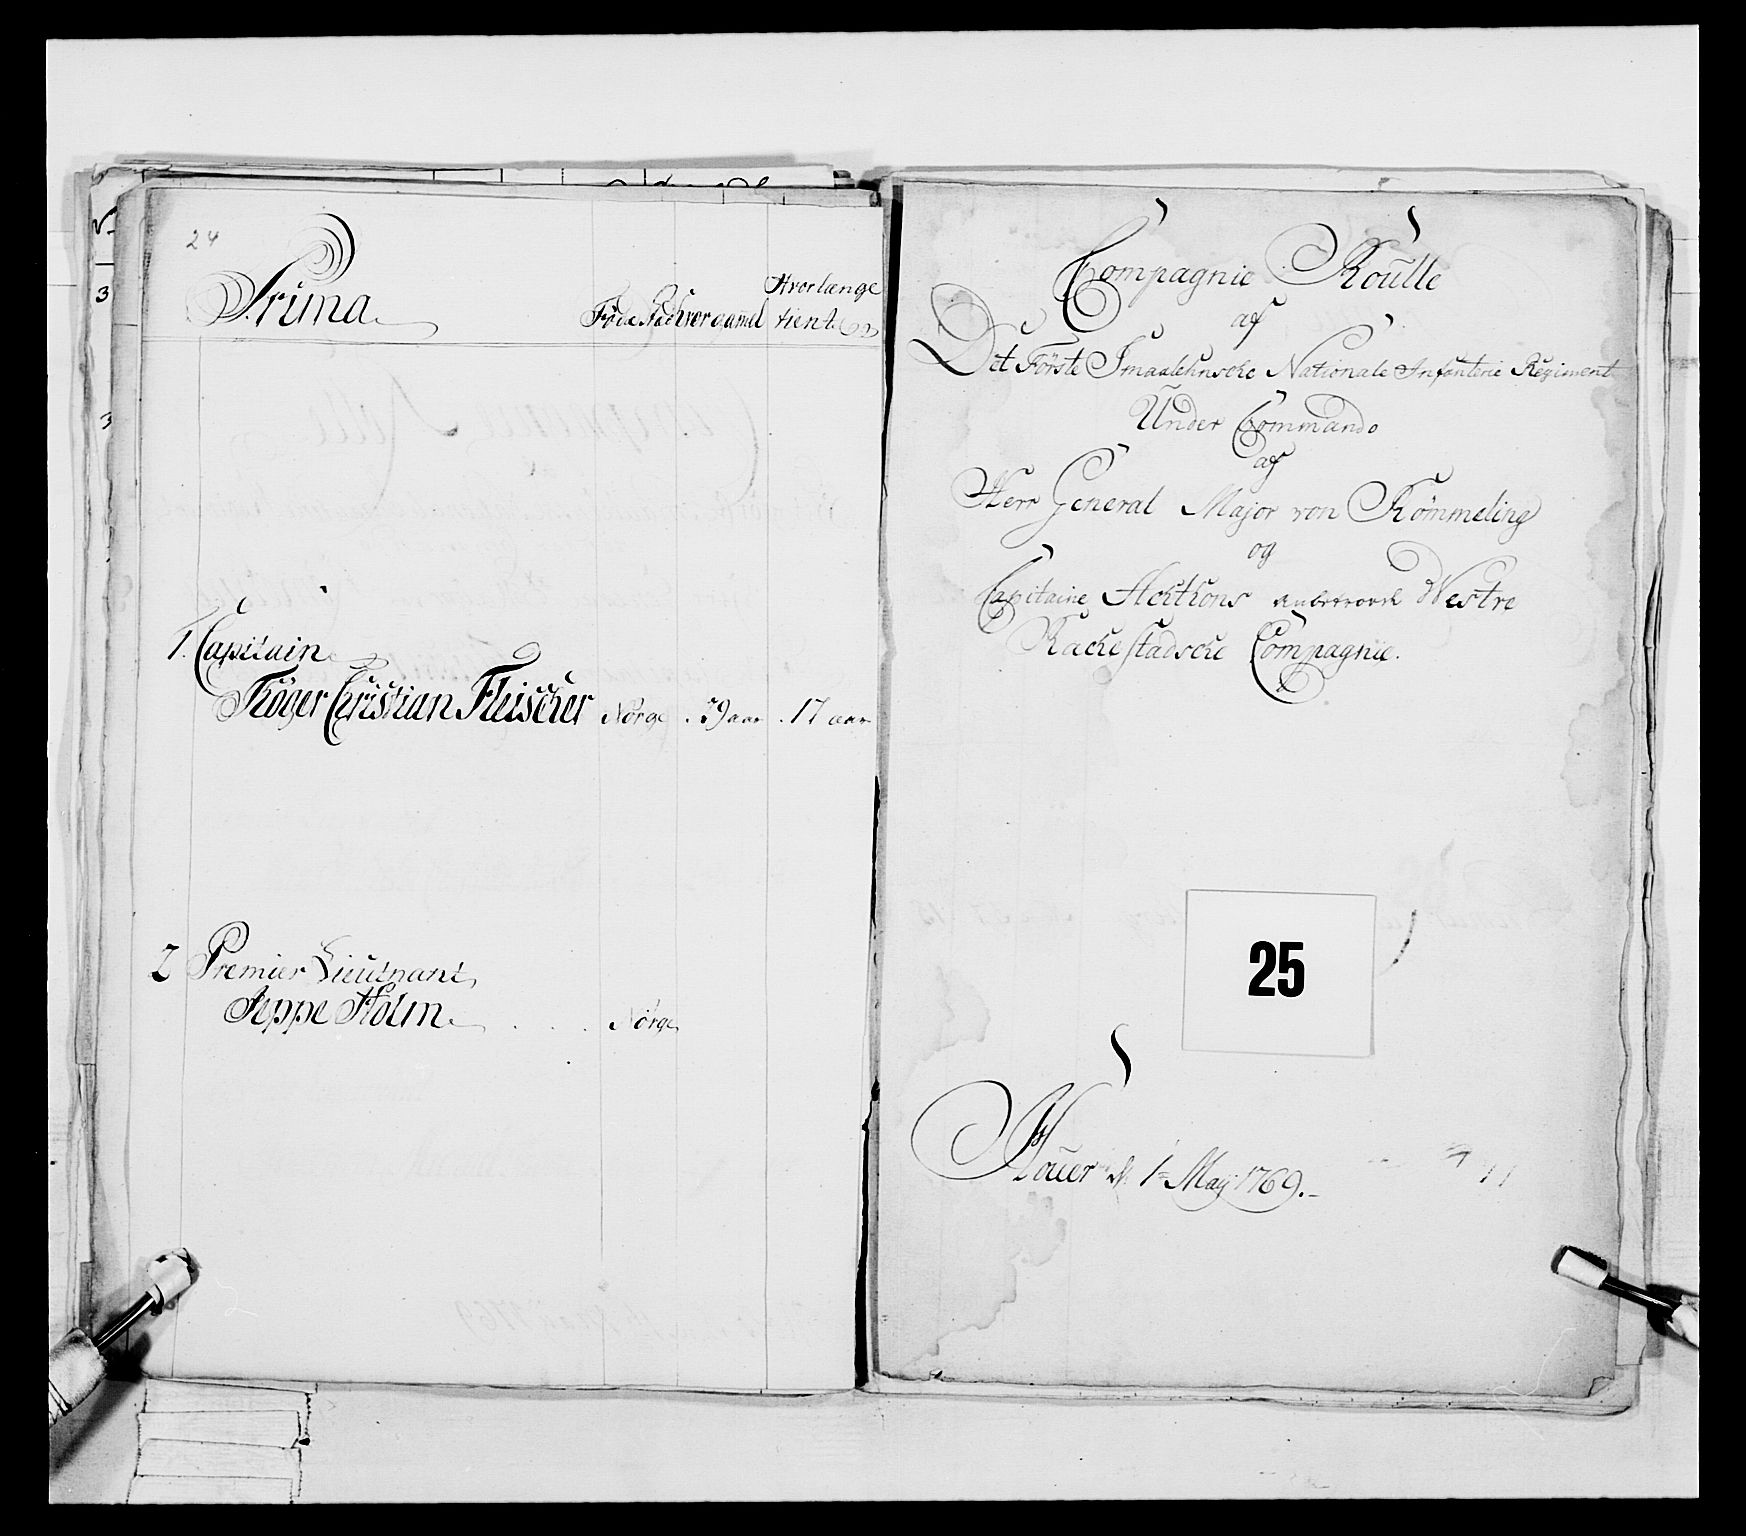 24
Prima
Föde Stæd
Hvor gamel
Hvorlænge
tient
1. Capitain
Röger Christian Fleischer Norge . 39 aar . 17 aar
2 Premier Lieutnant
Jeppe Holm . . . Norge
Compagnie Roulle
af
Det Förste Smaalehnsche Nationale Infanterie Regiment
Under Commando
af
Herr General Major von Römmeling
og
Capitaine anbetroede Westre
Rackestadsche Compagnie.
25
d. 1 May 1769.